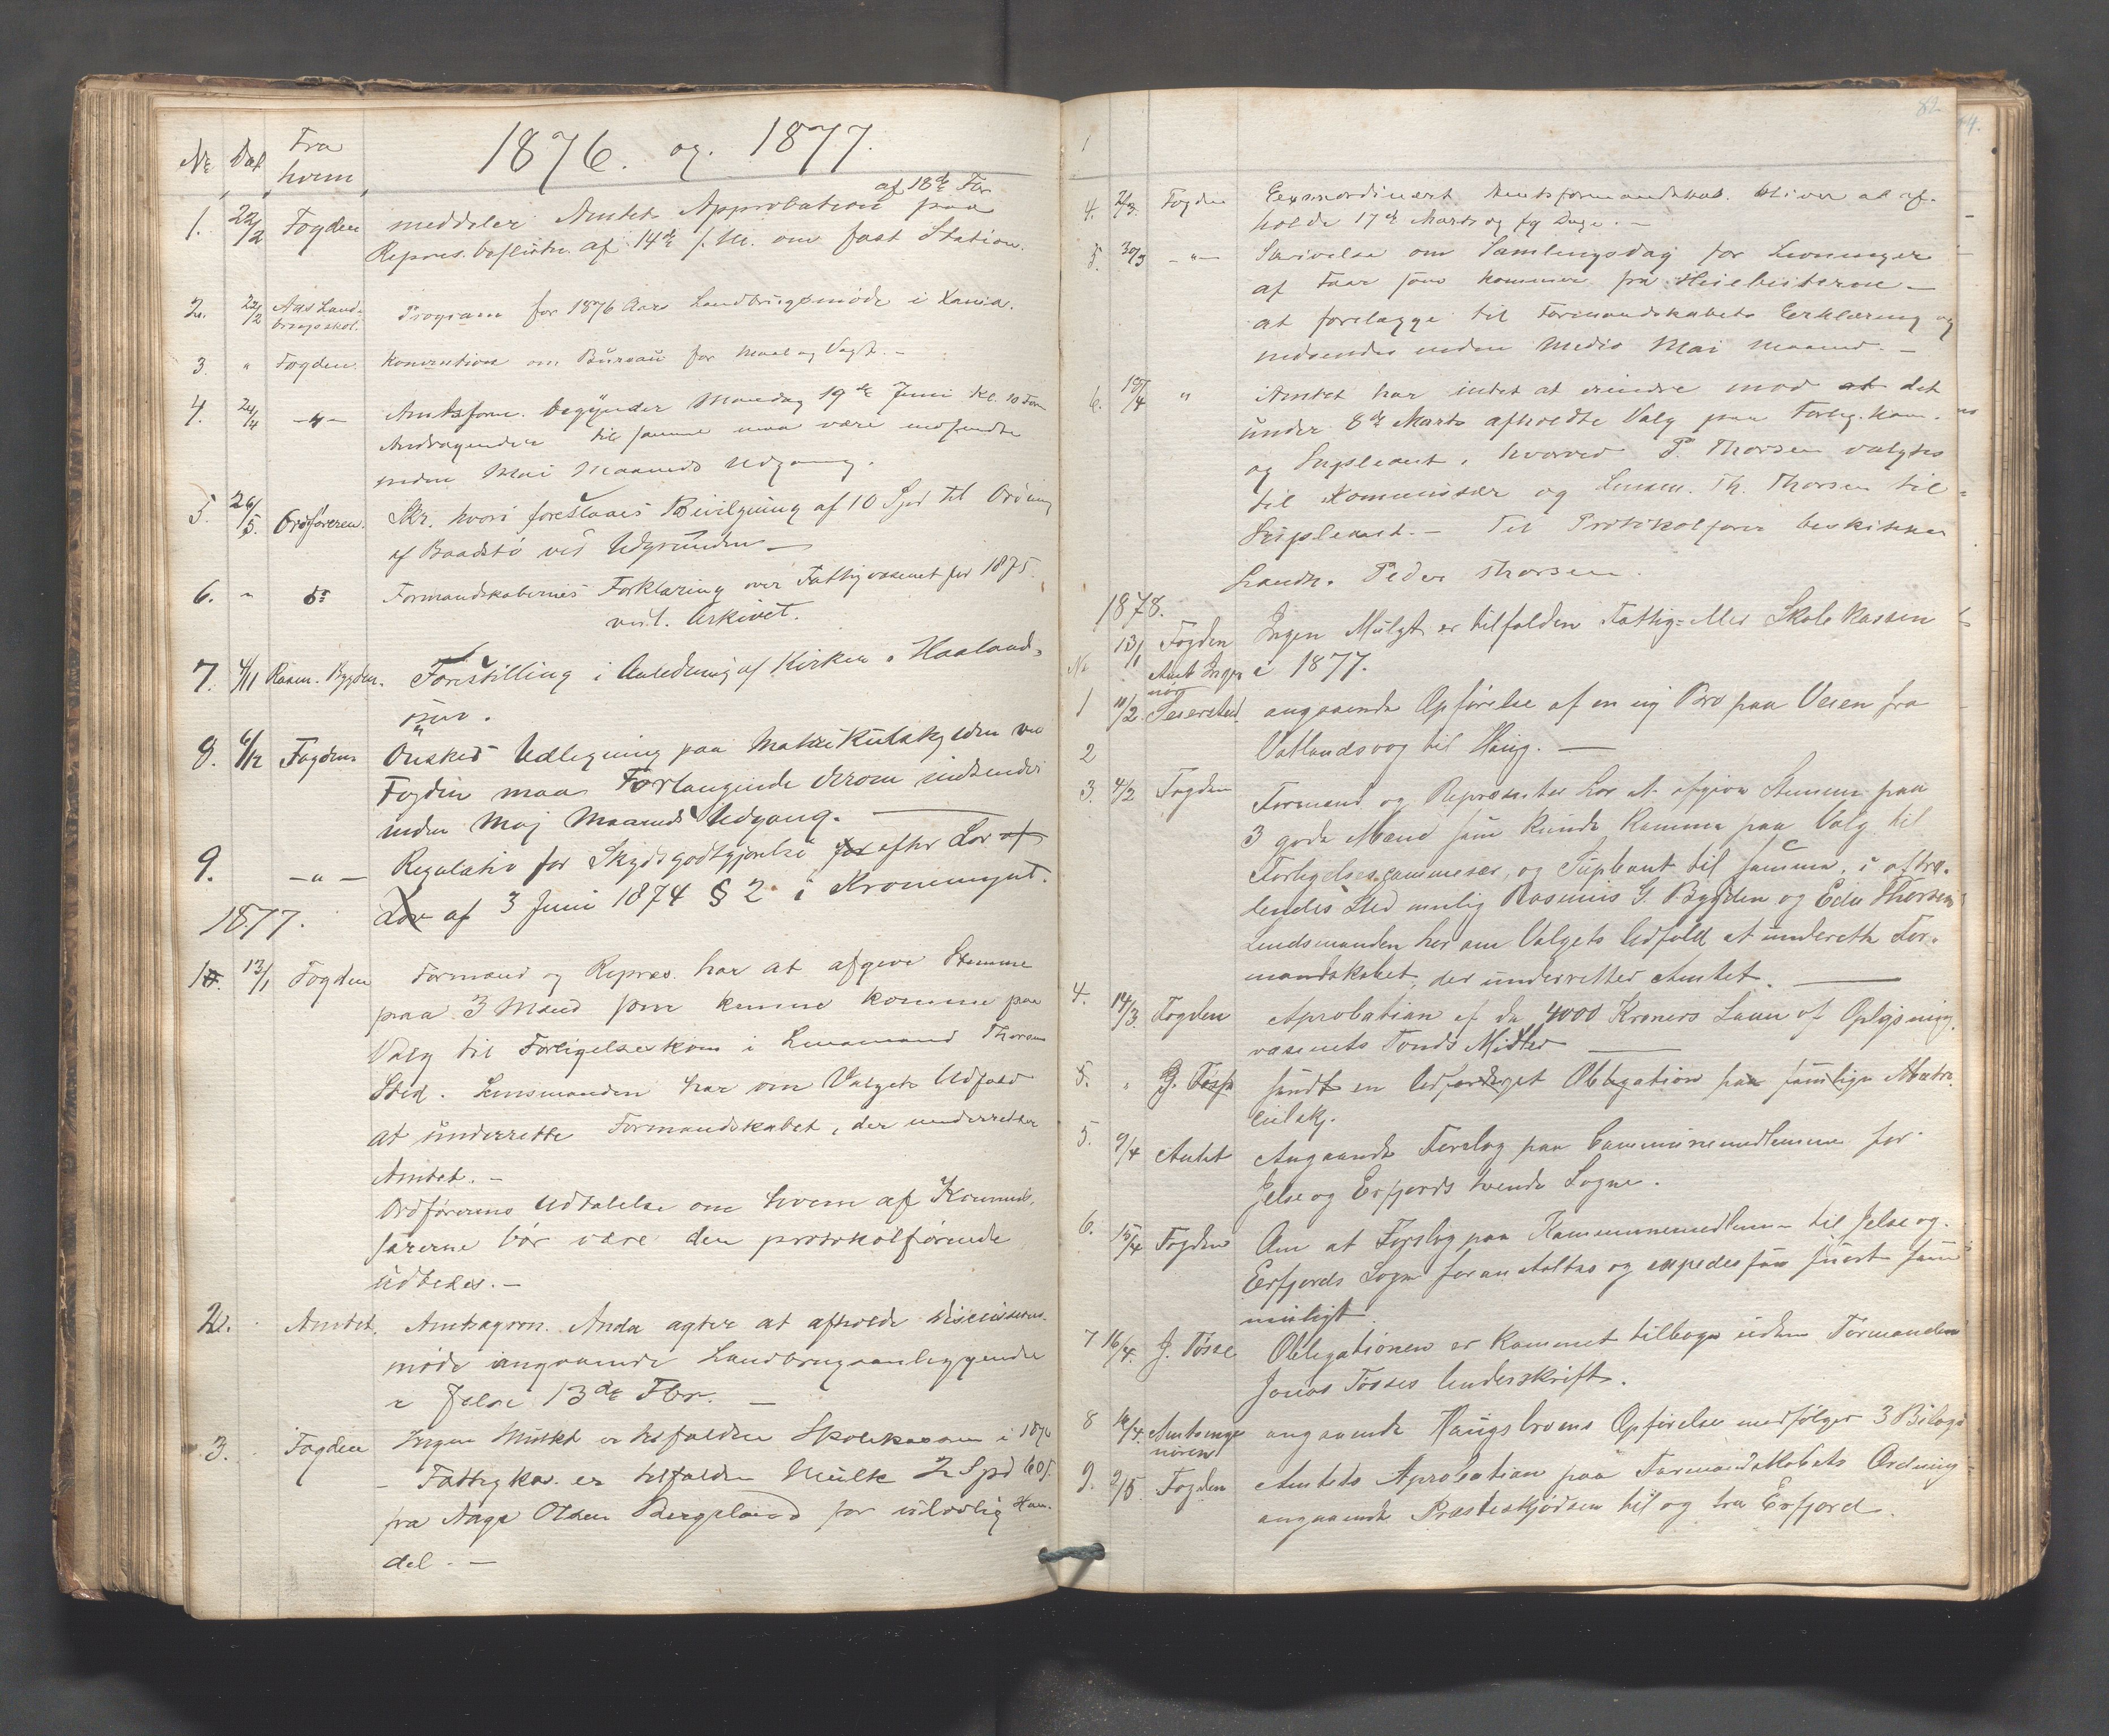 1876. og. 1877.
Nr. Dat Fra hvem
1. 22/2 Fogden meddeler Amtets Approbation af 18de Fbr paa
Repræs. beslutn. af 14de f. M. om fast Station.
2. 22/2 Aas Landbrugsskol. Program for 1876 Aars Landbrugsmöde i Xania.
3. " Fogden. Konvention om Büreau for Maal og Vægt. -
4. 24/4 -"- Amtsform. begÿnder Mandag 19de Juni Kl. 10 Form
Andragender til samme maa være indsendte
inden Mai Maaneds Udgang.
5. 26/5. Ordföreren. Skr. hvori foreslaaes Bevilgning af 10 Spd til
af Baadstö ved
6. " do Formandskabernes Forklaring over Fattigvæsenet for 1875.
vedl. Arkivet.
7. 4/11 Rasm. Bygden. Forestilling i Anledning af Kirken i Haalands-
osen.
8. 6/12 Fogden Önskes Udlegning paa Matrikülskylden ved
Fogden maa Forlangende derom indsendes
inden Maj Maaneds Udgang.
9. -"- Regulativ for Skydsgodtgjörelse for efter Lov af
Lov af 3 Juni 1874 § 2 i Kronemynt.
1877.
1. 13/1 Fogden Formænd og Repræs. har at afgive Stemme
paa 3 Mænd som kunne komme paa
Valg til Forligelseskom i Lensmand Thorsens
Sted. Lensmanden har om Valgets Udfald
at ünderrette Formandskabet, der underretter
Amtet. -
Ordförerens Udtalelse om hvem af Kommis-
særerne bör være den protokolförende
üdbedes. -
2. Amtet. Amtsagron. Anda agter at afholde Discüssions-
möde angaaende Landbrugsanliggender
i Jelse 13de Fbr. -
3. Fogden Ingen Mülkt er tilfalden Skolekassen i 1876
- Fattigkas. er tilfalden Mülkt 2 Spd 60 s.
fra Aage Olsen Bergeland for ülovlig Han-
del. -
82
4. 2/3. Fogden Extraordinært Amtsformandskab. bliver at af-
holde 17de Marts og fg Dage. -
5. 30/3 -"- Skrivelse om Samlingsdag for Levninger
af Faar som kommer fra Heiebeiterne -
at forelægge til Formandskabets Erklæring og
nedsendes inden Medio Mai Maaned. -
6. 18/4 " Amtet har intet at erindre mod at det
ünder 8de Marts afholdte Valg paa Forlig. kom.
og Süpleant, hvorved P. Thorsen valgtes
til Kommissær og Lensm. Th. Thorsen til
Süpleant. - Til Protokolförer beskikkes
Landh. Peder Thorsen.
1878.
13/1 Fogden Ingen Mülgt er tilfalden Fattig- eller Skole Kassen
i 1877.
Nr
1 11/2. Amts Ingeniör Seiersted. angaaende Opförelse af en ny Bro paa Veien fra
2 Vatlandsvog til Haüg. -
3. 4/2 Fogden Formænd og Repræsentter har at afgive Stemme paa
3 gode Mænd som künde komme paa Valg til
Forligelsescommisær, og Süpleant til samme, i aftræ-
dendes Sted nemlig Rasmus G. Bygden og Eder Thorsen
Lendsmanden har om Valgets Udfald at ünderette For-
mandskabet, der ünderretter Amtet.
4. 14/3. Fogden Aprobation af de 4000 Kroners Laan af Oplysnings
væsenets Fonds Midler
5. " J. Tösse sendt en Udfærdiget Obligation paa samlige Matri-
cülskj.
5. 9/4 Amtet Angaaende Forslag paa Commünemedlemmer for
Jelse og Erfjords tvende Sogne.
6. 15/4 Fogden Om at Forslag paa Kommunemedlem- til Jelse og
Erfjords Sogn foranstaltes og expederes saa snart som
müligt.
7 16/4. J. Tösse Obligationen er kommet tilbage uden Formanden
Jonas Tösses Underskrift.
8 14/4. Amtsingeniören angaaende Haügsbroens Opförelse medfölger 3 Bilage
9. 2/5 Fogden Amtets Aprobation paa Formandskabets Ordning
angaaende Præsteskjödsen til og fra Erfjord.